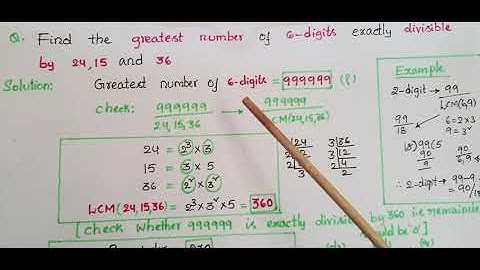 Q. Find the greatest number of 6-digits exactly divisible
by 24,15 and 36
Solution: Greatest number of 6-digits = 999999 (?)
check: 999999 / 24,15,36 → 999999 / LCM(24,15,36)
24 = 2³ × 3
15 = 3 × 5
36 = 2² × 3²
LCM(24,15,36) = 2³ × 3² × 5 = 360
[check whether 999999 is exactly divisible by 360 i.e remainder
should be '0']
Example
2-digit → 99
LCM(6,9)
99
18
6 = 2×3
9 = 3²
18) 99 (5
90
9
∴ 2-digit → 99-9
= 90